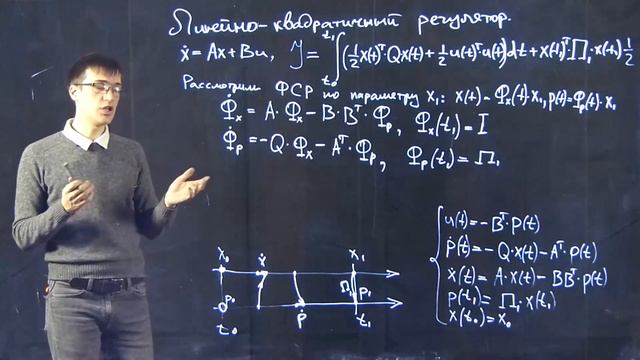 Линейно-квадратичный регулятор.
ẋ = Ax + Bu, J = ∫_{t₀}^{t₁} (½ x(t)ᵀQx(t) + ½ u(t)ᵀu(t)) dt + x(t₁)ᵀ·Π₁·x(t₁) ½
Рассмотрим ФСР по параметру x₁: x(t) = Φₓ(t)·x₁, p(t) = Φₚ(t)·x₁
Φ̇ₓ = A·Φₓ − B·Bᵀ·Φₚ, Φₓ(t₁) = I
Φ̇ₚ = −Q·Φₓ − Aᵀ·Φₚ, Φₚ(t₁) = Π₁
u(t) = −Bᵀp(t)
ṗ(t) = −Q·x(t) − Aᵀ·p(t)
ẋ(t) = A·x(t) − BBᵀp(t)
p(t₁) = Π₁·x(t₁)
x(t₀) = x₀
x₀ ẋ x₁
p₀ Π₁ p₁
t₀ ṗ t₁